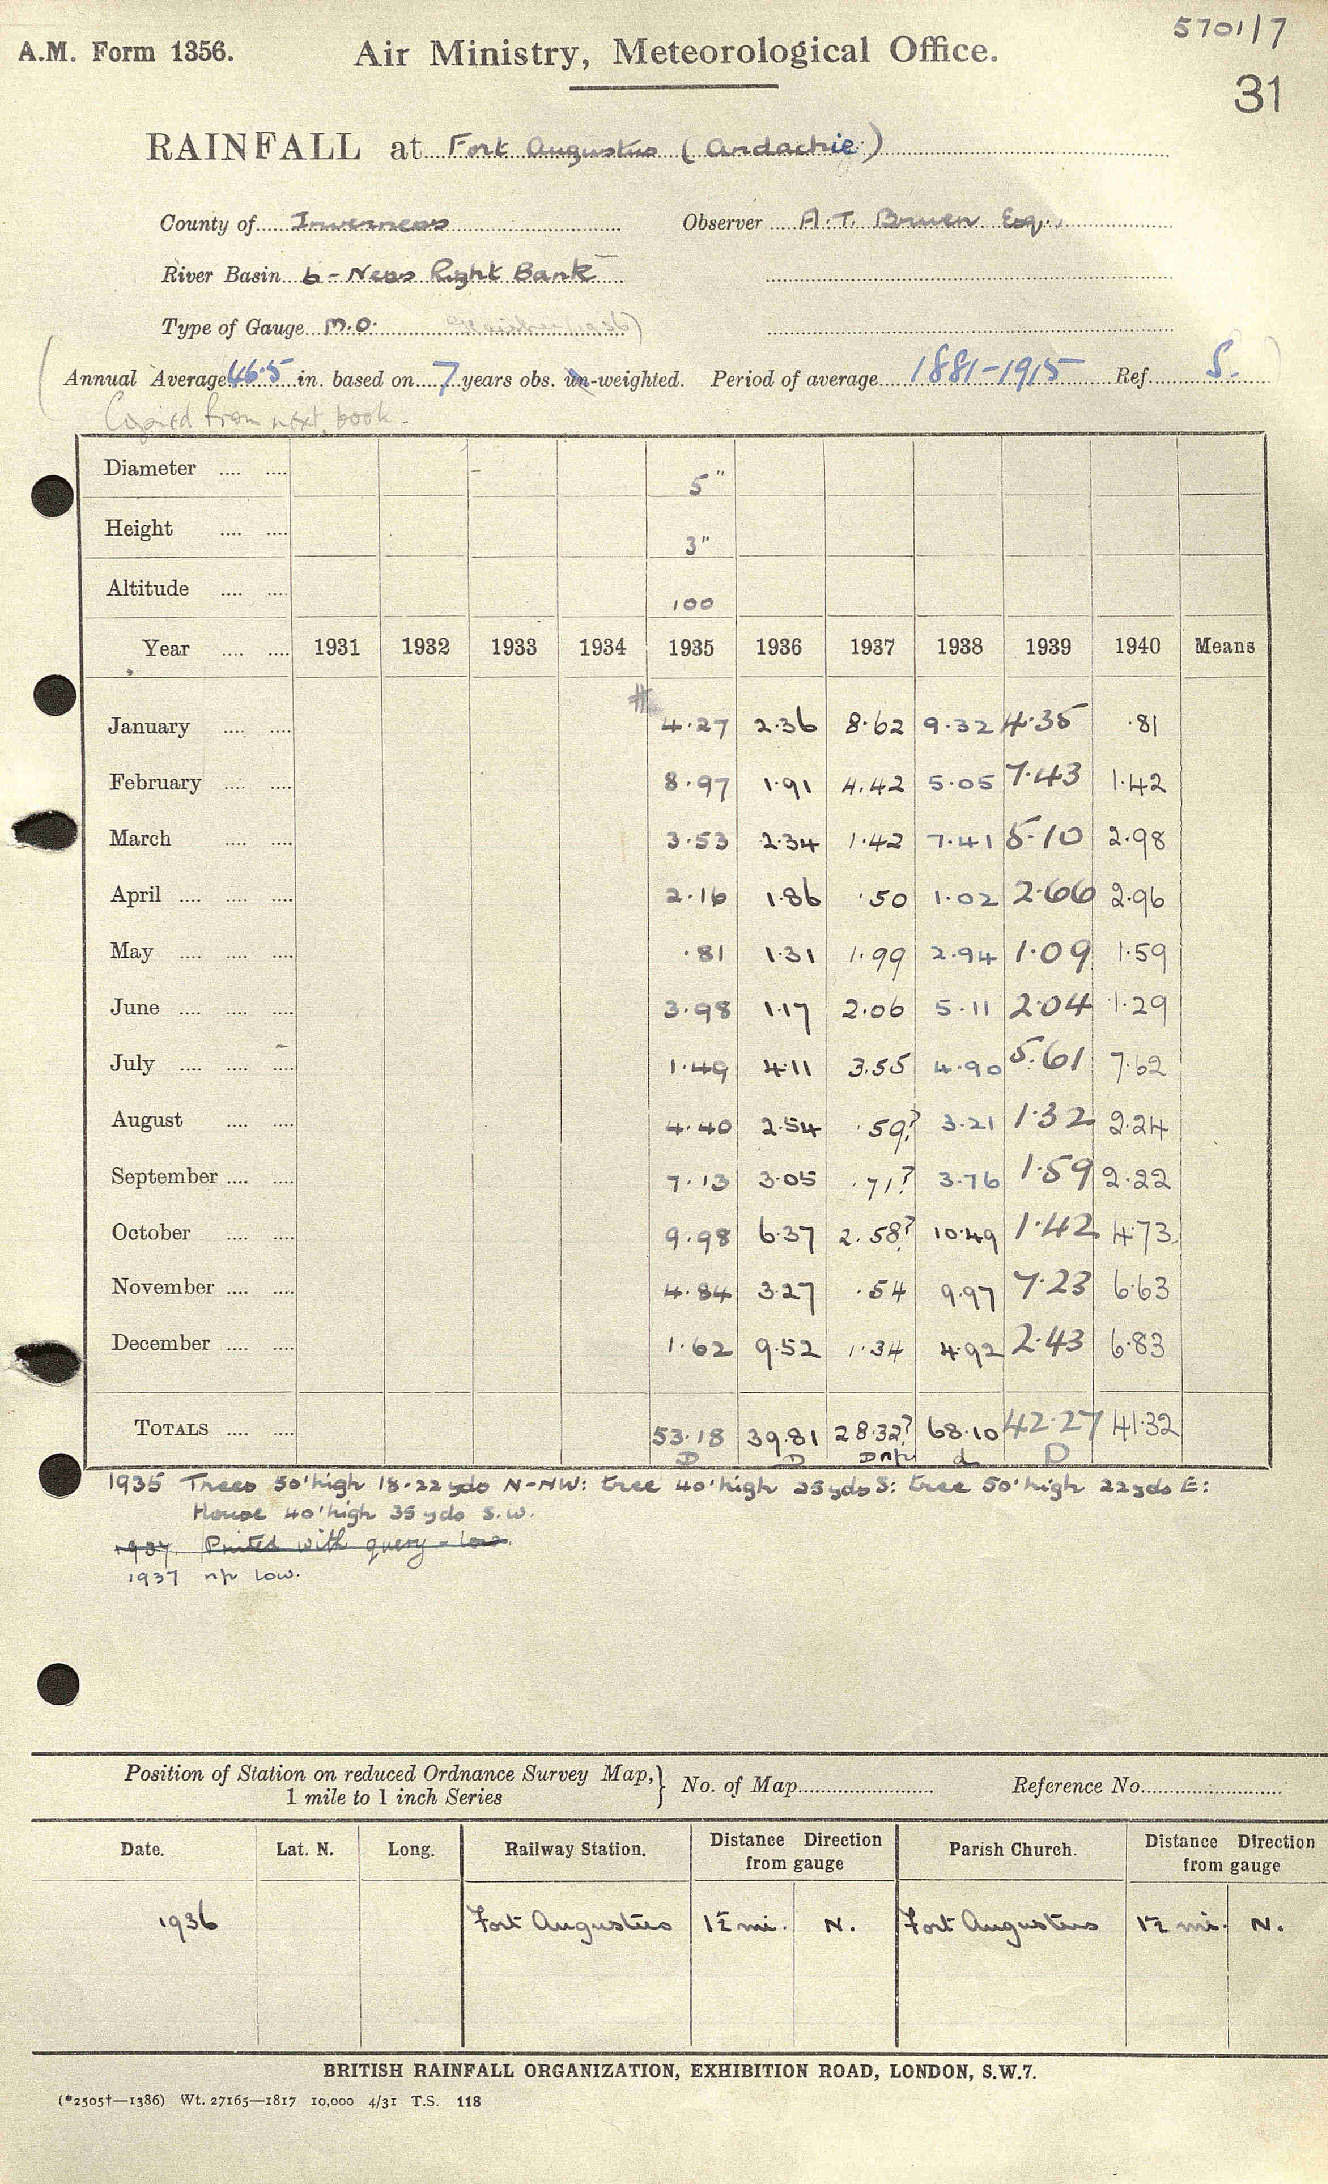 5701/7
A.M. Form 1356. Air Ministry, Meteorological Office.
31
RAINFALL at Fort Augustus (Ardachie)
County of Inverness Observer A.T. Bruen Esq.
River Basin 6 - Ness Right Bank
Type of Gauge M.O.
(Annual Average 46.5 in. based on 7 years obs. un-weighted. Period of average 1881-1915 Ref S.)
Copied from next book.
Diameter .... .... 5"
Height .... .... 3"
Altitude .... .... 100
Year .... .... 1931 1932 1933 1934 1935 1936 1937 1938 1939 1940 Means
January .... .... 4.27 2.36 8.62 9.32 4.35 .81
February .... .... 8.97 1.91 4.42 5.05 7.43 1.42
March .... .... 3.53 2.34 1.42 7.41 5.10 2.98
April .... .... .... 2.16 1.86 .50 1.02 2.66 2.96
May .... .... .... .81 1.31 1.99 2.94 1.09 1.59
June .... .... .... 3.98 1.17 2.06 5.11 2.04 1.29
July .... .... .... 1.49 4.11 3.55 4.90 5.61 7.62
August .... .... 4.40 2.54 .59? 3.21 1.32 2.24
September .... .... 7.13 3.05 .71? 3.76 1.59 2.22
October .... .... 9.98 6.37 2.58? 10.49 1.42 4.73
November .... .... 4.84 3.27 .54 9.97 7.23 6.63
December .... .... 1.62 9.52 1.34 4.92 2.43 6.83
TOTALS .... .... 53.18 39.81 28.32? 68.10 42.27 41.32
D D Dnp d D
1935 Trees 50' high 18-22 yds N-NW: tree 40' high 25 yds S: tree 50' high 22 yds E:
House 40' high 35 yds S.W.
1937. Printed with query - low.
1937 np low.
Position of Station on reduced Ordnance Survey Map, } No. of Map Reference No.
1 mile to 1 inch Series
Date. Lat. N. Long. Railway Station. Distance Direction from gauge Parish Church. Distance Direction from gauge
1936 Fort Augustus 1½ mi. N. Fort Augustus 1½ mi. N.
BRITISH RAINFALL ORGANIZATION, EXHIBITION ROAD, LONDON, S.W.7.
(*2505†—1386) Wt. 27165—1817 10,000 4/31 T.S. 118